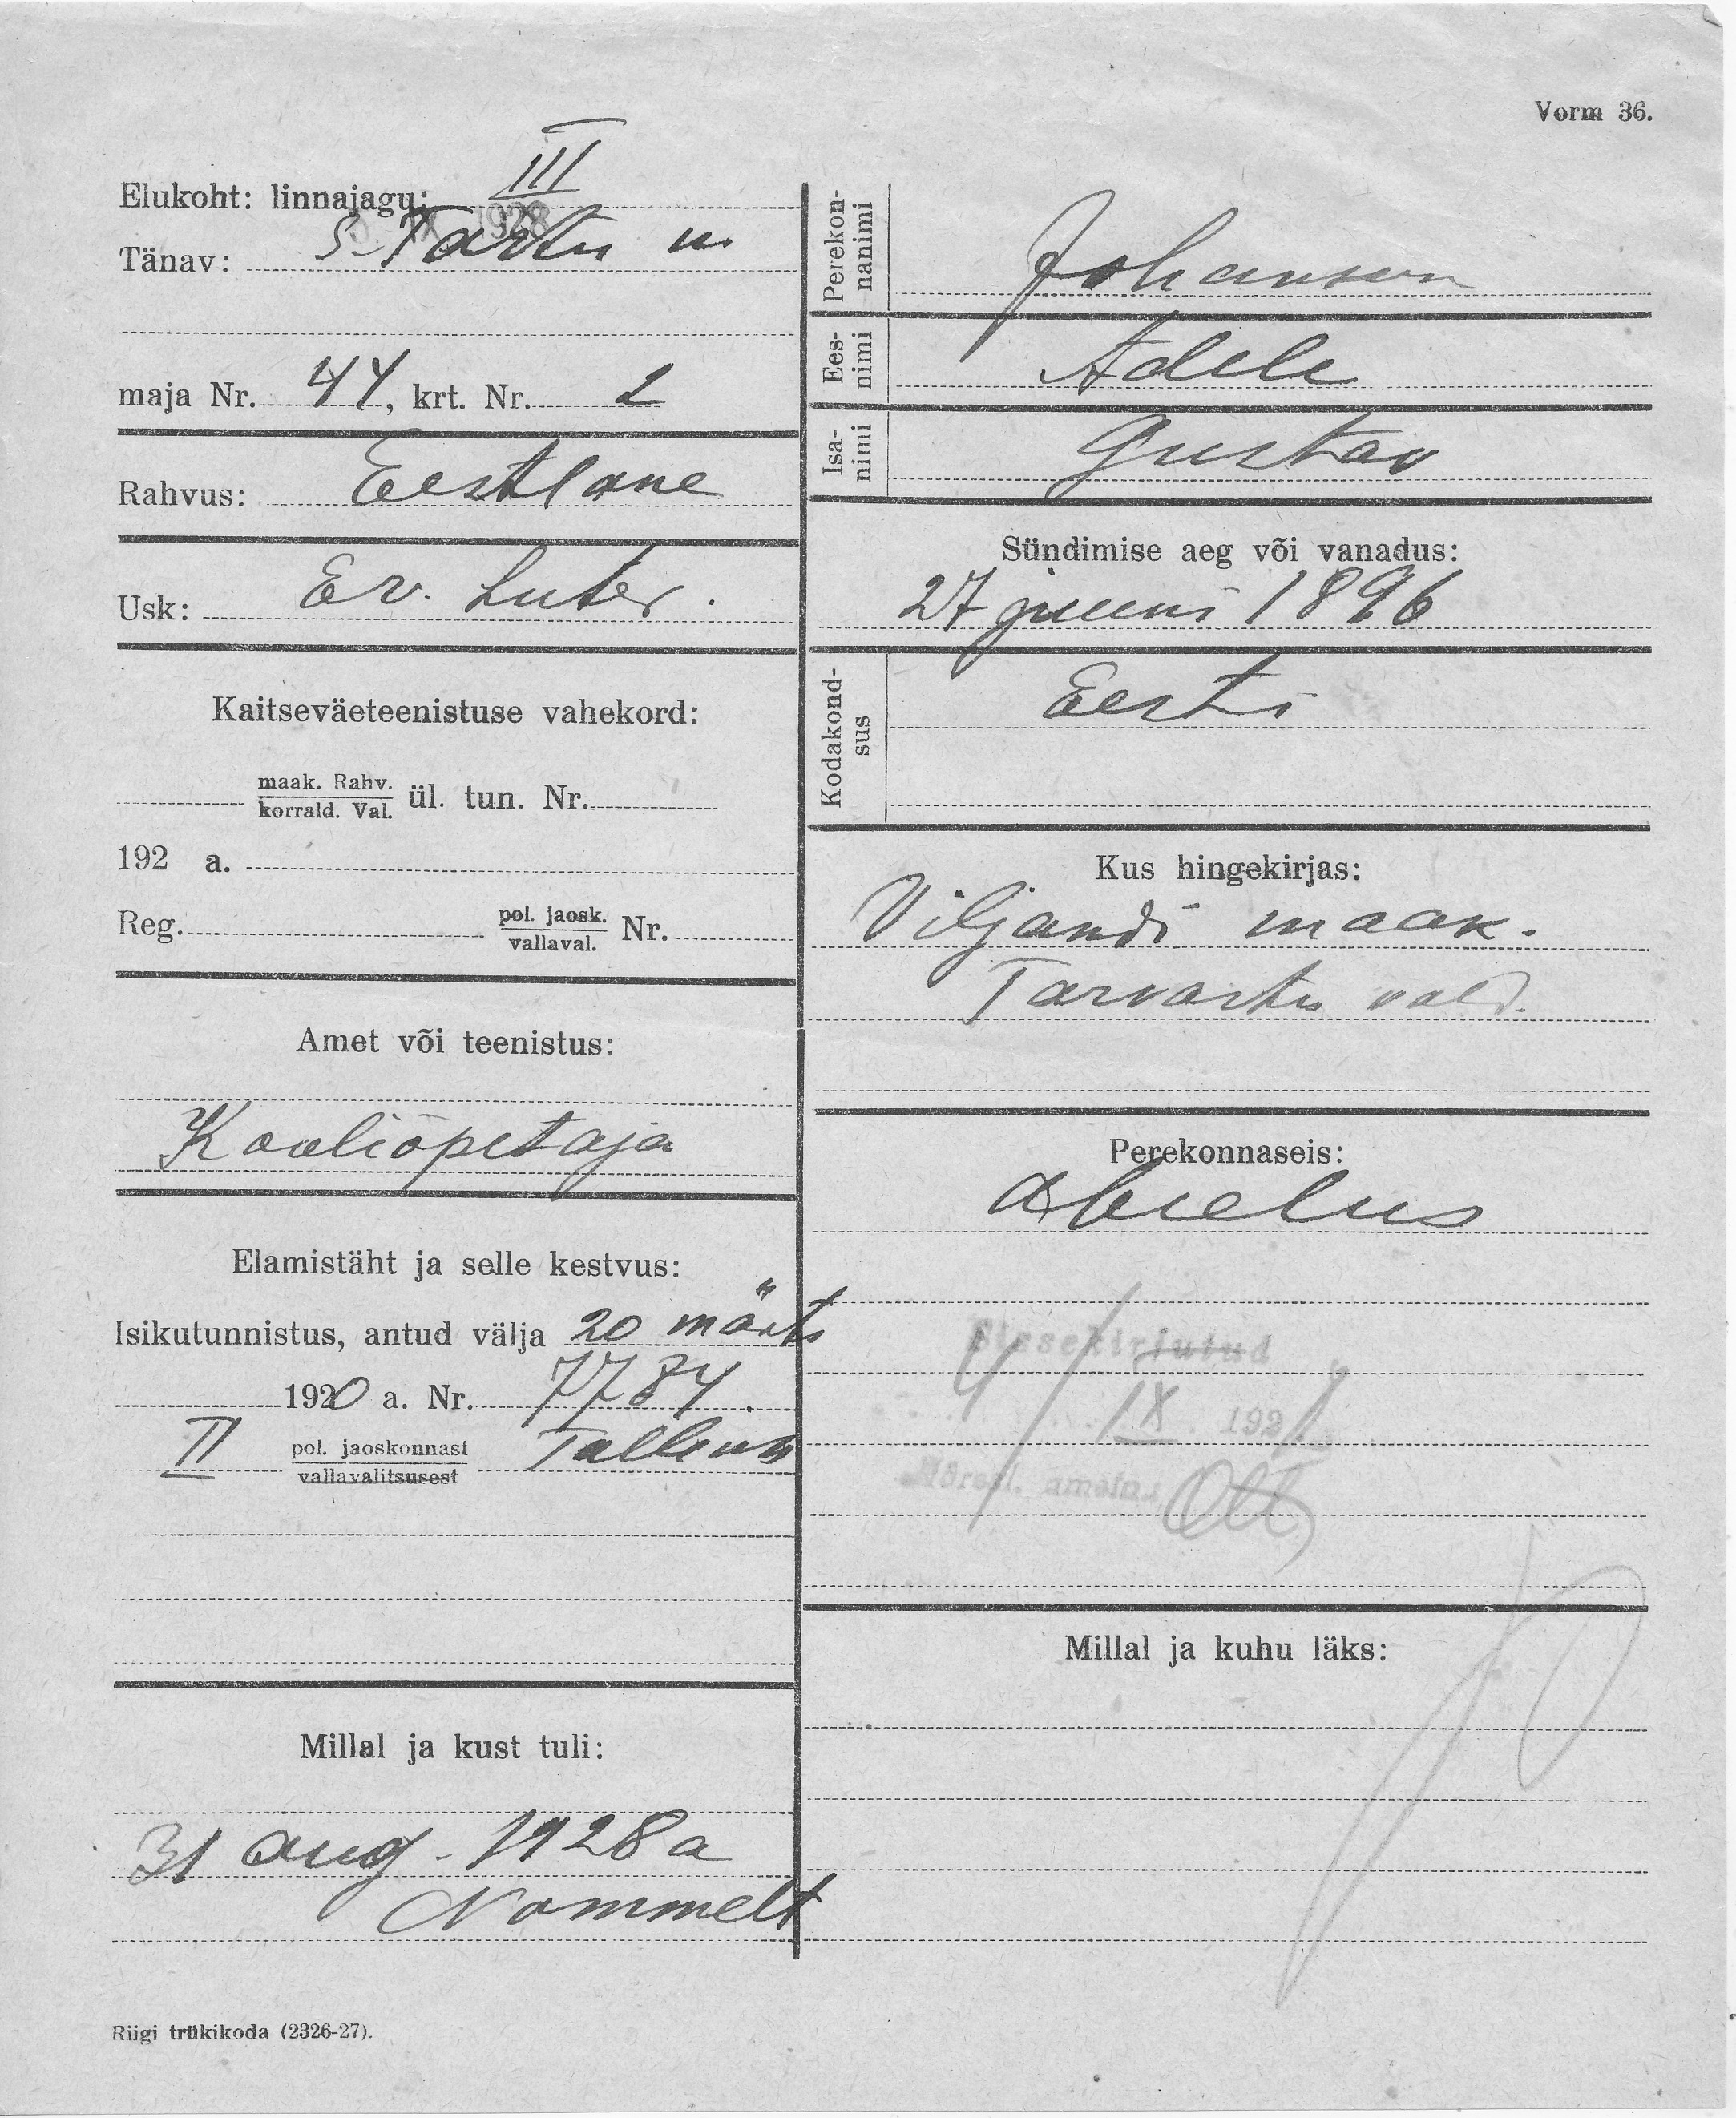 Vorm 36.
Elukoht: linnajagu: III
IX 1928
Tänav: S. Tartu m
maja Nr. 44, krt. Nr. 2
Rahvus: Eestlane
Usk: Ev. Luter.
Kaitseväeteenistuse vahekord:
maak. Rahv.
korrald. Val. ül. tun. Nr.
192 a.
Reg. pol. jaosk.
vallaval. Nr.
Amet või teenistus:
Kooliõpetaja
Elamistäht ja selle kestvus:
Isikutunnistus, antud välja 20 märts
1920 a. Nr. 7784.
II pol. jaoskonnast Tallinn
vallavalitsusest
Millal ja kust tuli:
31 aug. 1928 a
Nommelt
Riigi trükikoda (2326-27).
Perekon-
nanimi Johanson
Ees-
nimi Adele
Isa-
nimi Gustav
Sündimise aeg või vanadus:
27 juuni 1896
Kodakond-
sus Eesti
Kus hingekirjas:
Viljandi maak.
Tarvastu vald.
Perekonnaseis:
abielus
Sissekirjutud
4 IX 1928
Millal ja kuhu läks: